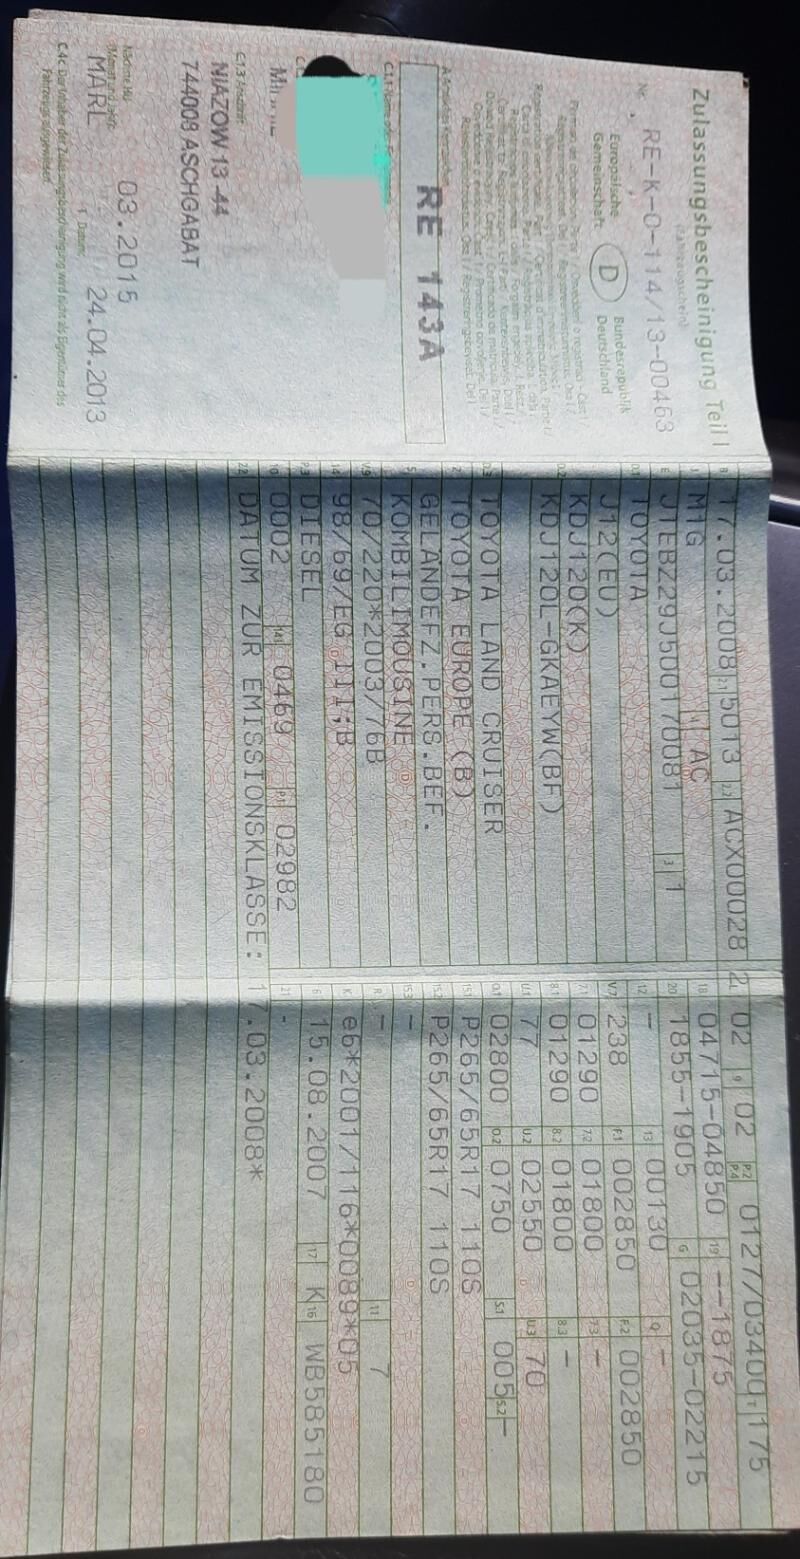 Zulassungsbescheinigung Teil I
(Fahrzeugschein)
Nr. RE-K-0-114/13-00463
Europäische Gemeinschaft
D
Bundesrepublik Deutschland
RE 143A
C.1.3 Anschrift
NIAZOW 13-44
744008 ASCHGABAT
Nächste HU
03.2015
MARL
Datum:
24.04.2013
C.4c Der Inhaber der Zulassungsbescheinigung wird nicht als Eigentümer des Fahrzeugs ausgewiesen.
B 17.03.2008 2.1 5013 2.2 ACX00028 2
J M1G 4 AC
E JTEBZ29J500170081 3 1
D.1 TOYOTA
J12(EU)
KDJ120(K)
D.2 KDJ120L-GKAEYW(BF)
D.3 TOYOTA LAND CRUISER
2 TOYOTA EUROPE (B)
GELANDEFZ.PERS.BEF.
5 KOMBILIMOUSINE
V.9 70/220*2003/76B
14 98/69/EG III;B
P.3 DIESEL
10 0002 14.1 0469 P.1 02982
22 DATUM ZUR EMISSIONSKLASSE: 17.03.2008*
02 9 02 P.2 P.4 0127/03400 T 175
18 04715-04850 19 --1875
20 1855-1905 G 02035-02215
12 - 13 00130 Q -
V.7 238 F.1 002850 F.2 002850
7.1 01290 7.2 01800 7.3 -
8.1 01290 8.2 01800 8.3 -
U.1 77 U.2 02550 U.3 70
O.1 02800 O.2 0750 S.1 005 S.2 -
15.1 P265/65R17 110S
15.2 P265/65R17 110S
15.3 -
R - 11 7
K e6*2001/116*0089*05
6 15.08.2007 17 K 16 WB585180
21 -